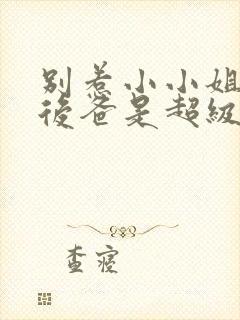 别惹小小姐
後爸是超級
查寝